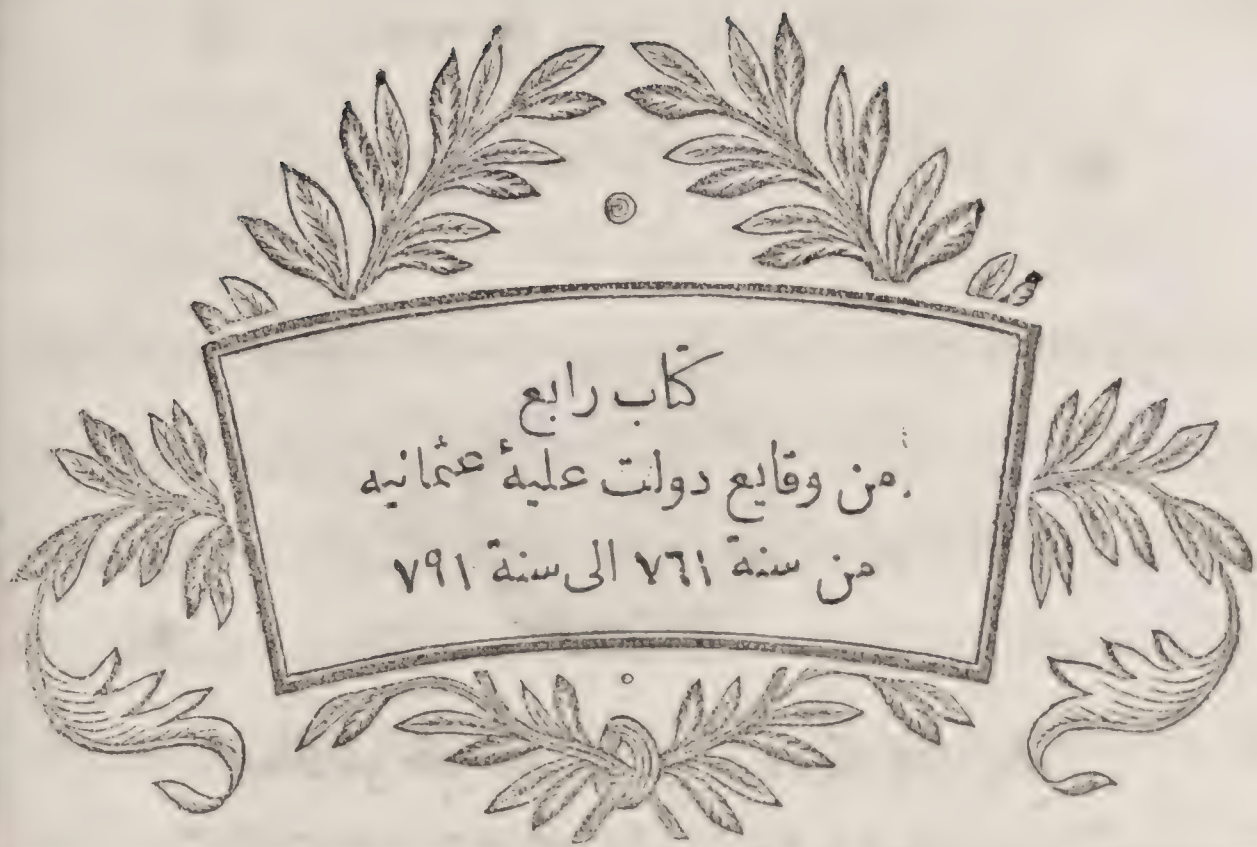 كتاب رابع
من وقايع دولت عليهٔ عثمانيه
من سنة ٧٦١ الى سنة ٧٩١